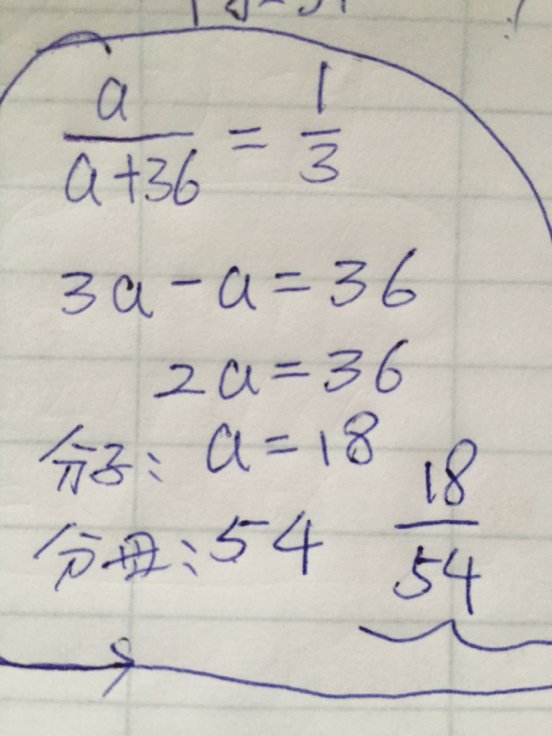 a/(a+36) = 1/3
3a - a = 36
2a = 36
分子: a = 18
分母: 54 18/54